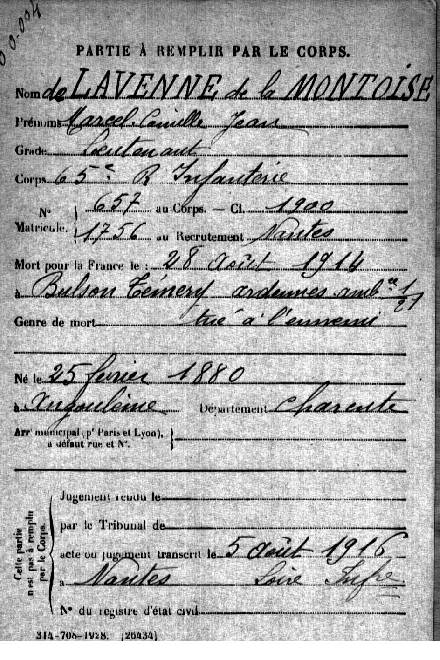 PARTIE À REMPLIR PAR LE CORPS.
Nom de LAVENNE de la MONTOISE
Prénoms Marcel Camille Jean
Grade Lieutenant
Corps 65e R Infanterie
N° Matricule. 657 au Corps. — Cl. 1900
1756 au Recrutement Nantes
Mort pour la France le : 28 août 1914
à Bulson Ardennes amb
Genre de mort tué à l'ennemi
Né le 25 février 1880
à Angoulême Département Charente
Arrt municipal (pr Paris et Lyon),
à défaut rue et N°.
Cette partie n'est pas à remplir par le Corps.
Jugement rendu le
par le Tribunal de
acte ou jugement transcrit le 5 août 1916
à Nantes Loire Infre
N° du registre d'état civil
314-708-1928. [26434]